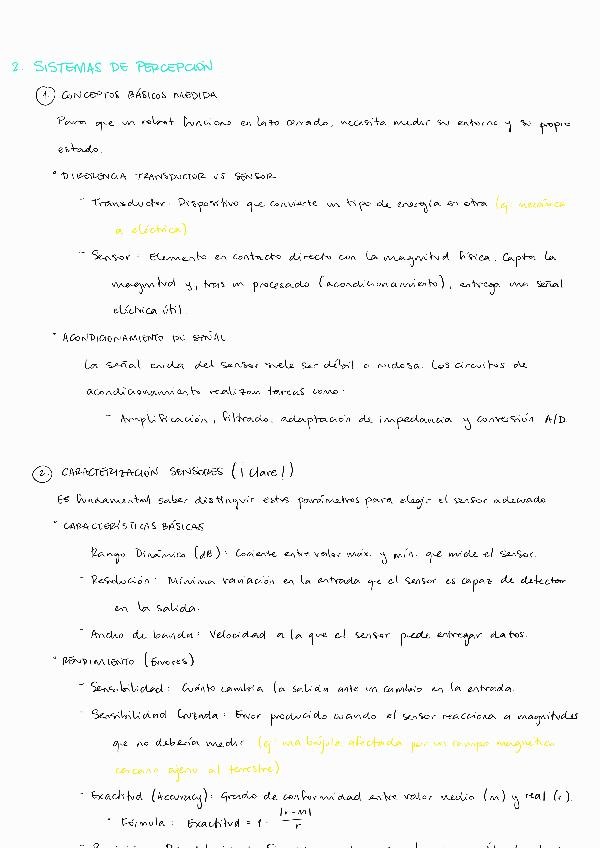 2. SISTEMAS DE PERCEPCIÓN
1. CONCEPTOS BÁSICOS MEDIDA
Para que un robot funcione en lazo cerrado, necesita medir su entorno y su propio
estado.
° DIFERENCIA TRANSDUCTOR VS SENSOR
- Transductor: Dispositivo que convierte un tipo de energía en otra (ej: mecánica
a eléctrica)
- Sensor: Elemento en contacto directo con la magnitud física. Capta la
magnitud y, tras un procesado (acondicionamiento), entrega una señal
eléctrica útil.
° ACONDICIONAMIENTO DE SEÑAL
La señal cruda del sensor suele ser débil o ruidosa. Los circuitos de
acondicionamiento realizan tareas como:
- Amplificación, filtrado, adaptación de impedancia y conversión A/D.
2. CARACTERIZACIÓN SENSORES (¡Clave!)
Es fundamental saber distinguir estos parámetros para elegir el sensor adecuado
° CARACTERÍSTICAS BÁSICAS
Rango Dinámico (dB): Cociente entre valor máx. y mín. que mide el sensor.
- Resolución: Mínima variación en la entrada que el sensor es capaz de detectar
en la salida.
- Ancho de banda: Velocidad a la que el sensor puede entregar datos.
° RENDIMIENTO (Errores)
- Sensibilidad: Cuánto cambia la salida ante un cambio en la entrada.
- Sensibilidad Cruzada: Error producido cuando el sensor reacciona a magnitudes
que no debería medir (ej: una brújula afectada por un campo magnético
cercano ajeno al terrestre)
- Exactitud (Accuracy): Grado de conformidad entre valor medio (m) y real (r).
° Fórmula: Exactitud = 1 - |r-m|/r